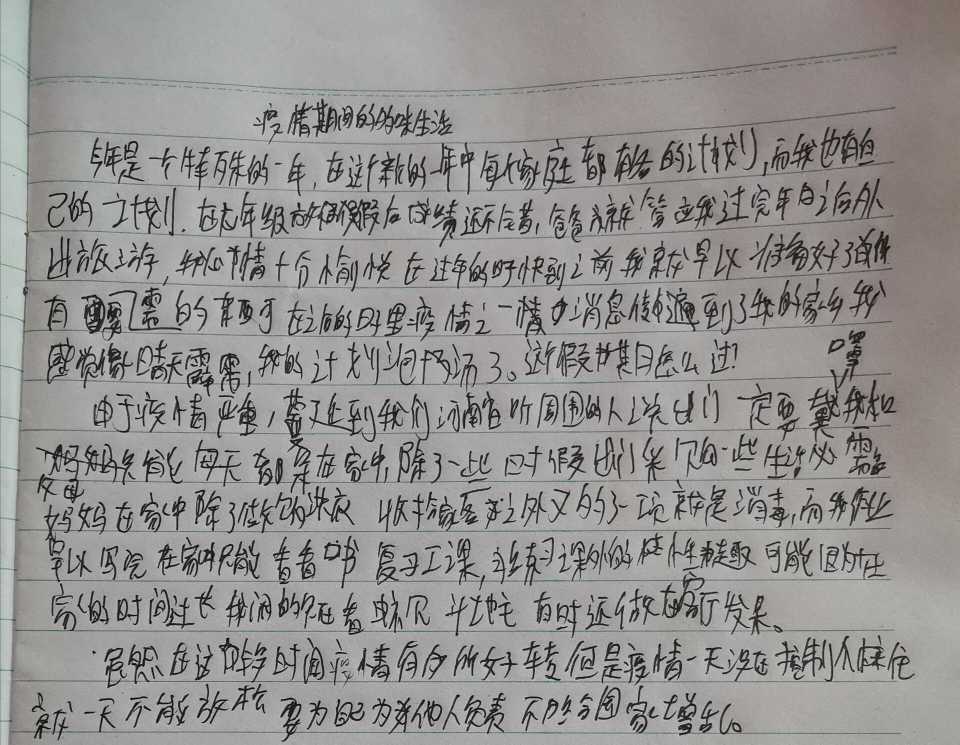 疫情期间的的味生活
今年是一个特殊的一年,在这个新的一年中每个家庭都有各的计划,而我也有自
己的计划.在七年级放假后成绩还不错,爸爸就答应我过完年日之后外
出旅游,我心情十分愉悦在过年的时快到之前我就早以准备好了
有需的东西可在之后的日里疫情之一情消息传遍到了我的家乡我
感觉像晴天霹雳,我的计划泡汤了。这假期日怎么过!
由于疫情严重,蔓延到我们河南省听周围的人说出门一定要戴口罩我和
妈妈只能每天都呆在家中,除了一些时候出门采购一些生活必需
父母妈妈在家中除了做饭洗衣 收拾家务之外又的了一项就是消毒,而我作业
早以写完在家中只能看看书 复习工课,练习课外的 可能因为在
家的时间过长我闲的只在看 斗地主 有时还做在窗前发呆。
虽然在这段时间疫情有所好转但是疫情一天没在控制个
就一天不能放松 要为自己为他人负责 不给国家增乱。